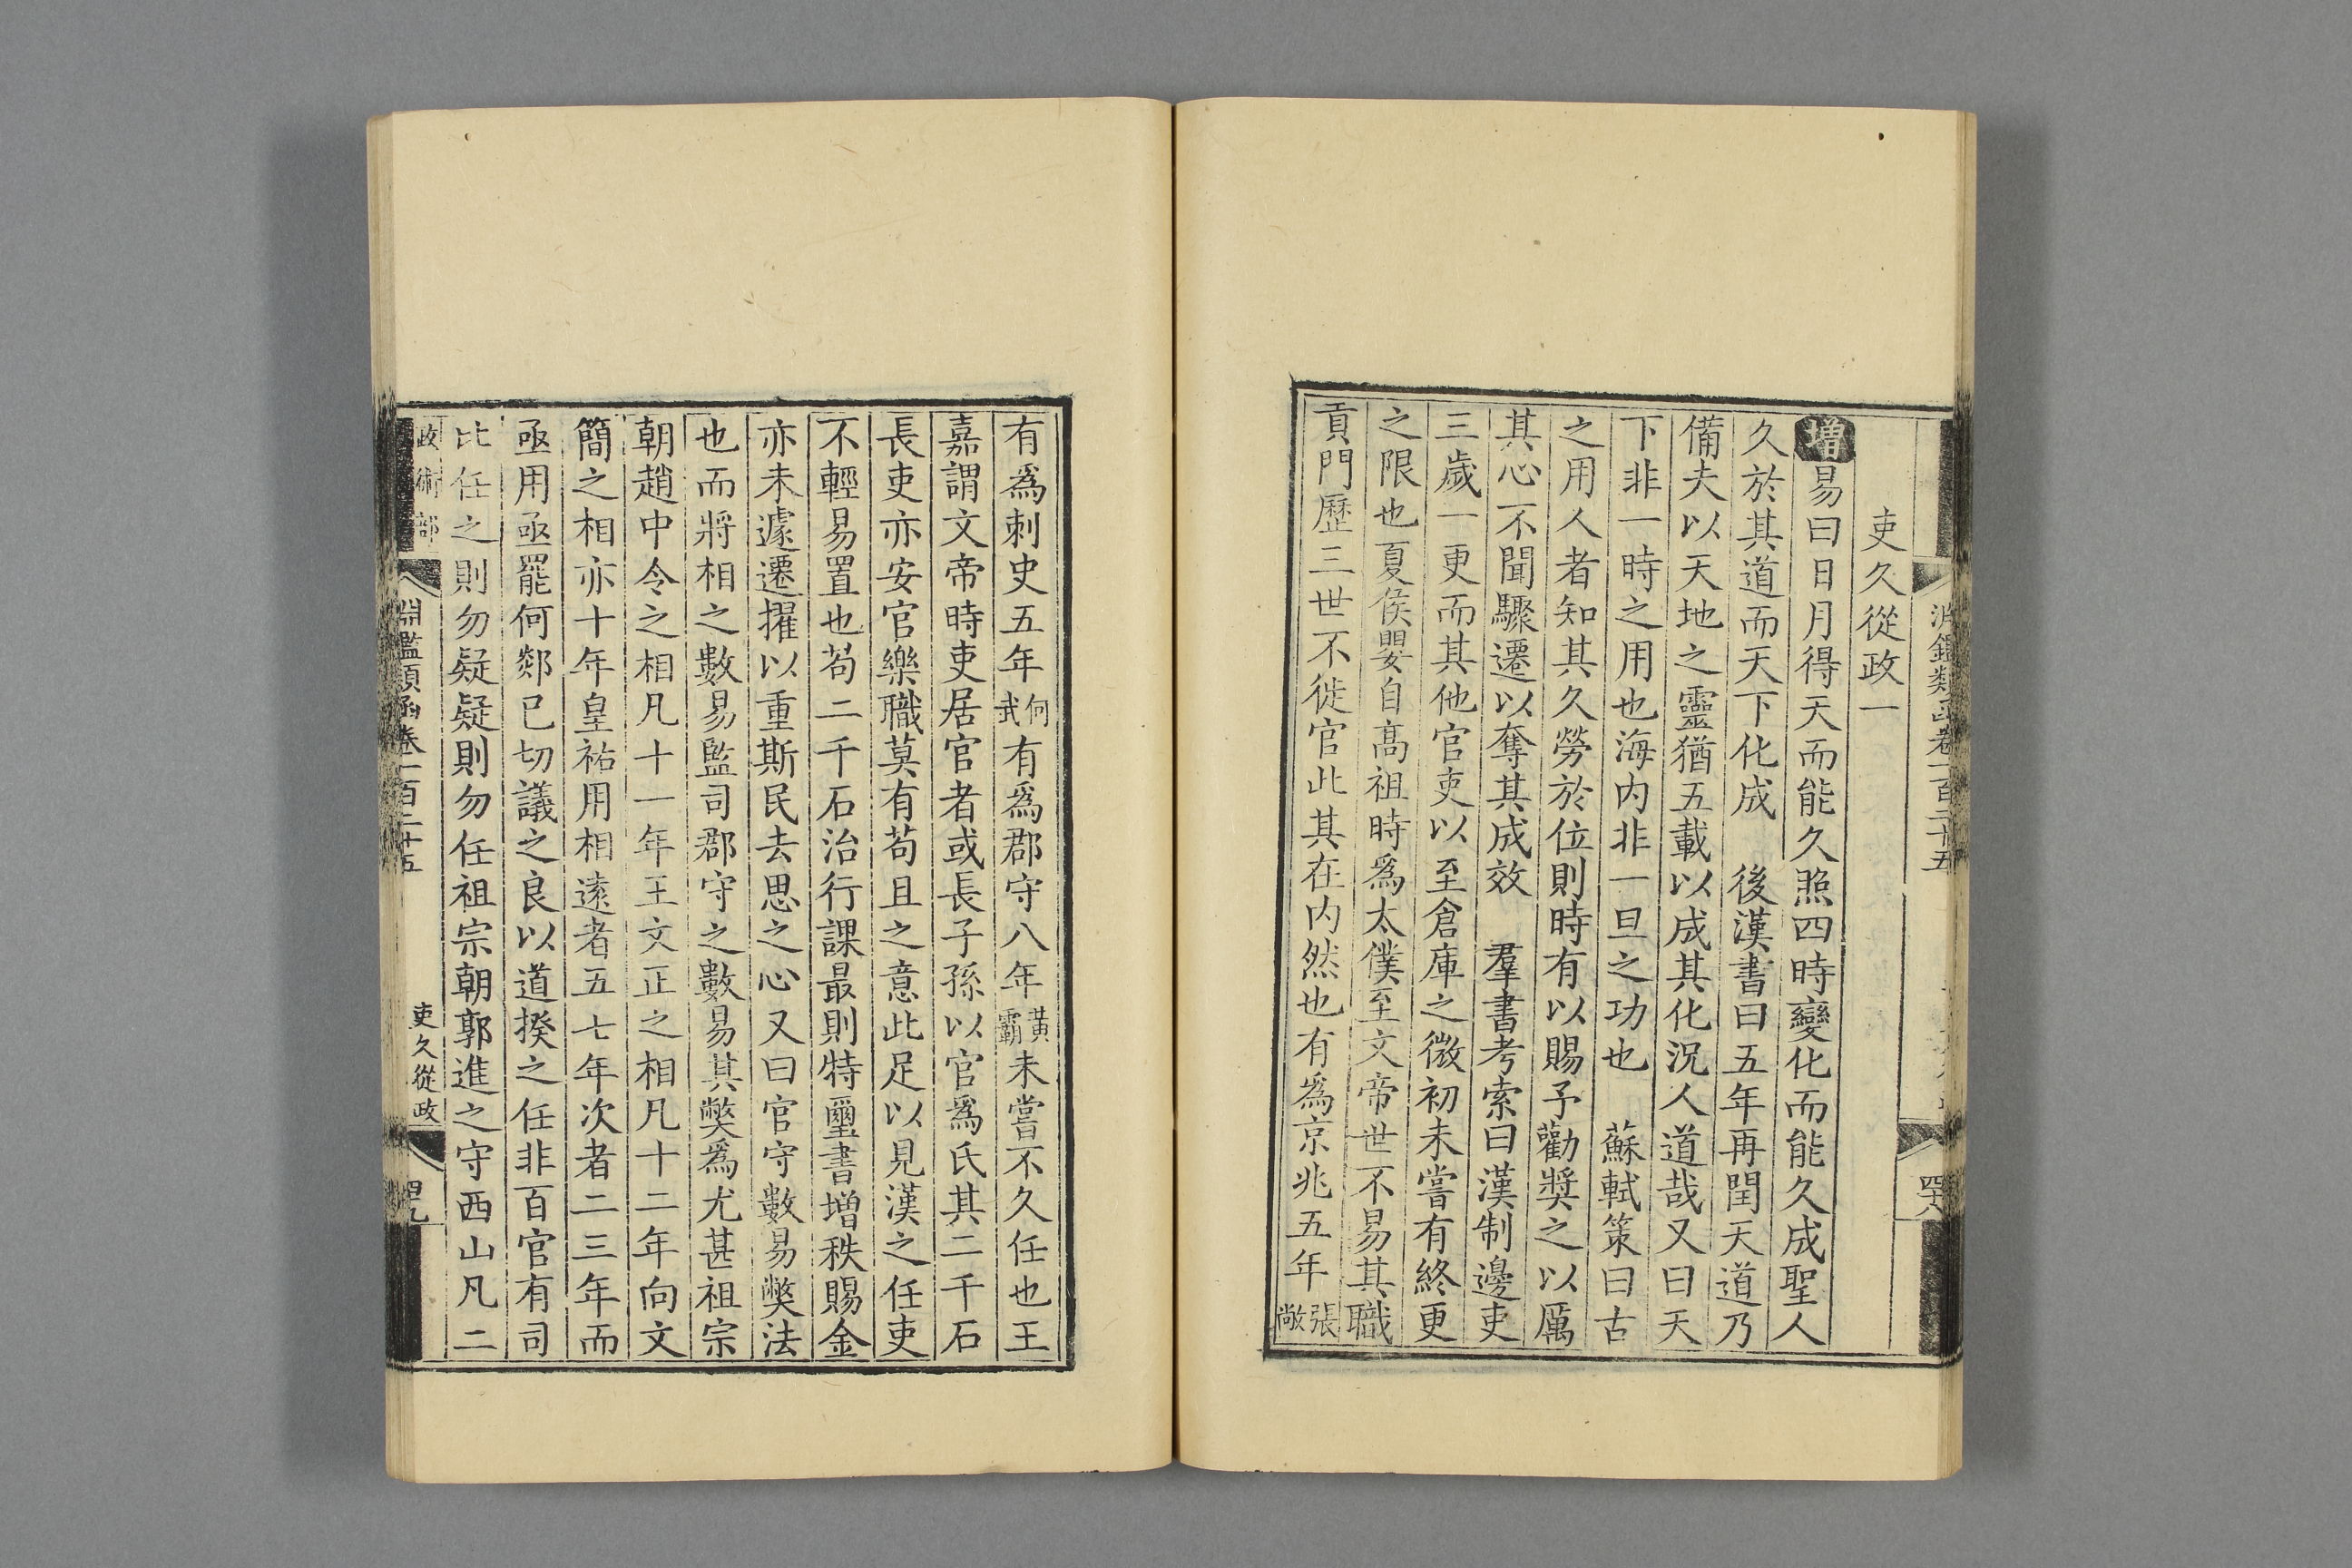 淵鑑類函卷一百二十五
四十八
吏久從政一
增易曰日月得天而能久照四時變化而能久成聖人
久於其道而天下化成　後漢書曰五年再閏天道乃
備夫以天地之靈猶五載以成其化況人道哉又曰天
下非一時之用也海内非一旦之功也　蘇軾策曰古
之用人者知其久勞於位則時有以賜予勸奬之以厲
其心不聞驟遷以奪其成效　羣書考索曰漢制邊吏
三歲一更而其他官吏以至倉庫之微初未嘗有終更
之限也夏侯嬰自髙祖時爲太僕至文帝世不易其職
貢門歷三世不徙官此其在内然也有爲京兆五年張敞
有爲刺史五年何武有爲郡守八年黃霸未嘗不久任也王
嘉謂文帝時吏居官者或長子孫以官爲氏其二千石
長吏亦安官樂職莫有苟且之意此足以見漢之任吏
不輕易置也苟二千石治行課最則特璽書增秩賜金
亦未遽遷擢以重斯民去思之心又曰官守數易獘法
也而將相之數易監司郡守之數易其獘爲尤甚祖宗
朝趙中令之相凡十一年王文正之相凡十二年向文
簡之相亦十年皇祐用相逺者五七年次者二三年而
亟用亟罷何郯已切議之良以道揆之任非百官有司
比任之則勿疑疑則勿任祖宗朝郭進之守西山凡二
政術部
淵鑑類函卷一百二十五
吏久從政
四十九